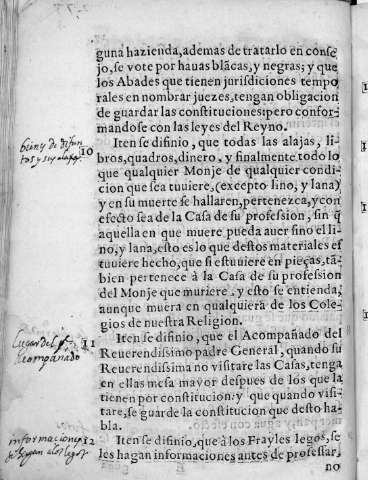 guna hazienda, ademas de tratarlo en conse
jo, se vote por hauas blãcas, y negras; y que
los Abades que tienen jurisdiciones tempo
rales en nombrar juezes, tengan obligacion
de guardar las constituciones: pero confor-
mandose con las leyes del Reyno.
bienes de difun
tos y sus alajas
10
Iten se difinio, que todas las alajas, li-
bros, quadros, dinero, y finalmente todo lo
que qualquier Monje de qualquier condi-
cion que sea tuuiere, (excepto lino, y lana)
y en su muerte se hallaren, pertenezca, y con
efecto sea de la Casa de su profession, sin q̃
aquella en que muere pueda auer sino el li-
no, y lana, esto es lo que destos materiales es
tuuiere hecho, que si estuuiere en pieças, tã-
bien pertenece à la Casa de su profession
del Monje que muriere, y esto se entienda,
aunque muera en qualquiera de los Cole-
gios de nuestra Religion.
Lugar del
Acompañado
11
Iten se difinio, que el Acompañado del
Reuerendissimo padre General, quando su
Reuerendissima no visitare las Casas, tenga
en ellas mesa mayor despues de los que la
tienen por constitucion: y que quando visi-
tare, se guarde la constitucion que desto ha-
bla.
informaciones
se hagan a los legos
12
Iten se difinio, que à los Frayles legos, se
les hagan informaciones antes de professar,
no